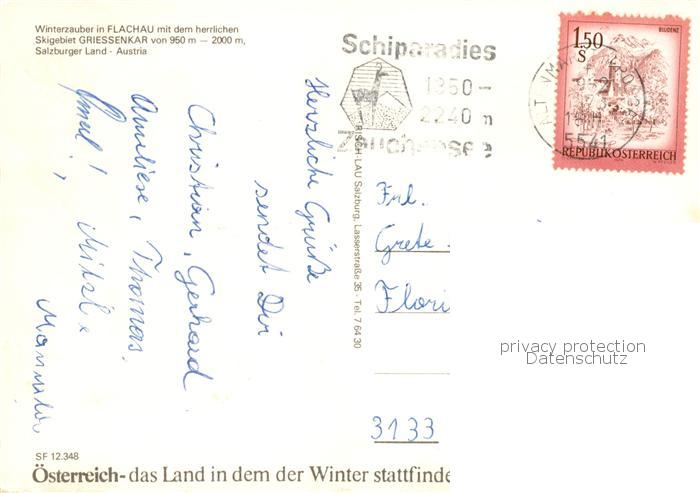 Winterzauber in FLACHAU mit dem herrlichen
Skigebiet GRIESSENKAR von 950 m — 2000 m,
Salzburger Land - Austria
Schiparadies
1350 -
2240 m
Zauchensee
5541
1.50
S
BLUDENZ
REPUBLIK ÖSTERREICH
Herzliche Grüße
sendet Dir
Christian, Gerhard
Anneliese, Thomas,
RISCH-LAU Salzburg, Lasserstraße 35 - Tel. 7 64 30
Frl.
Grete
Flori
3133
privacy protection
Datenschutz
SF 12.348
Österreich- das Land in dem der Winter stattfinde